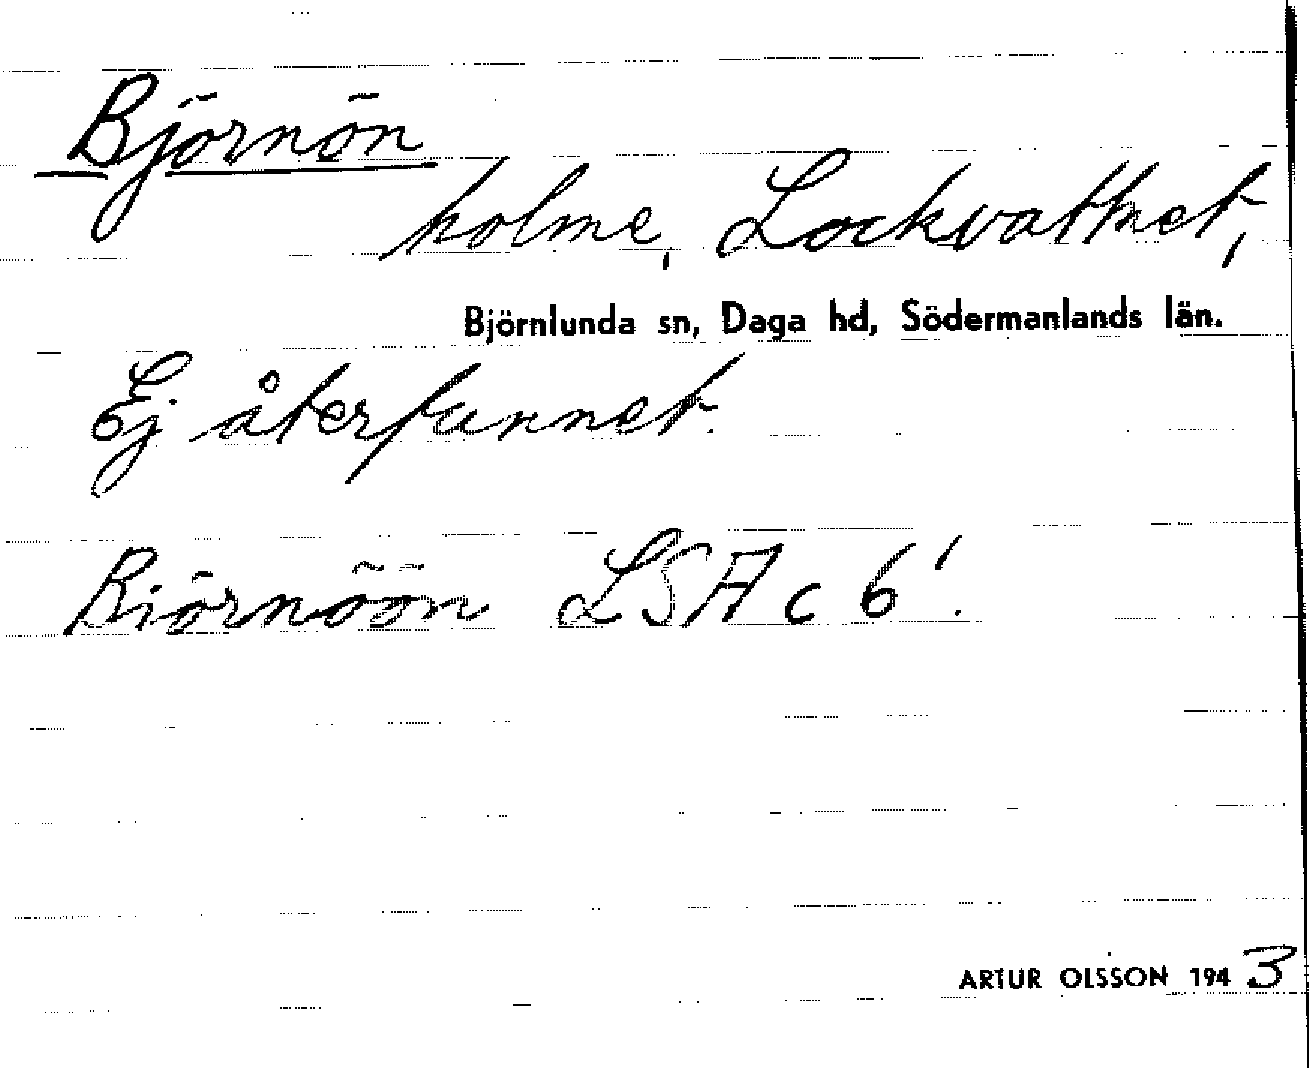 Björnön
holme, Lockvattnet,
Björnlunda sn, Daga hd, Södermanlands län.
Ej återfunnet.
Biörnöön LSA c 6!
ARTUR OLSSON 1943